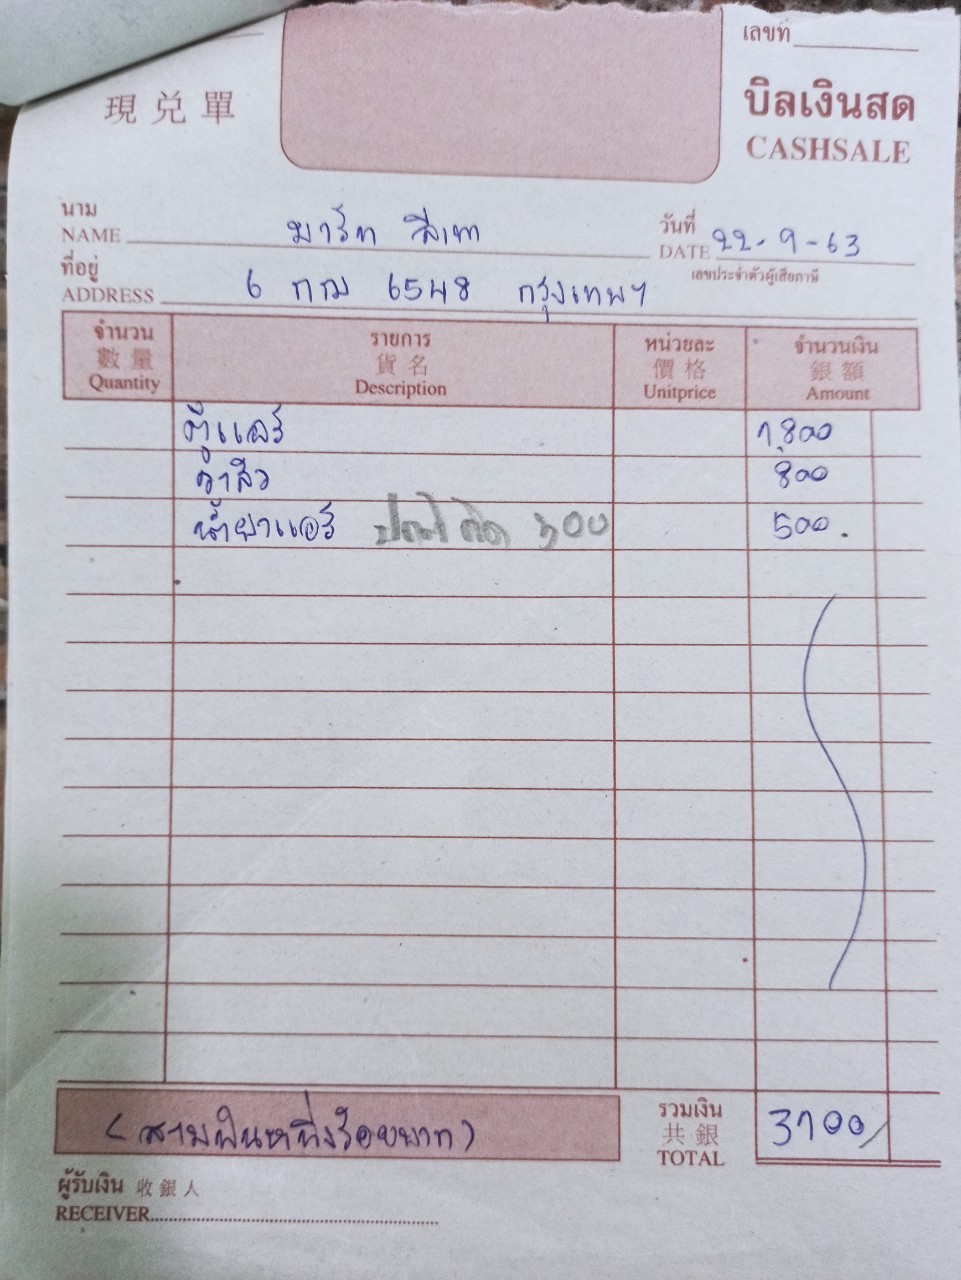 เลขที่
現兑單
บิลเงินสด
CASHSALE
นาม
NAME มาร์ท สีเทา
วันที่
DATE 22-9-63
เลขประจำตัวผู้เสียภาษี
ที่อยู่
ADDRESS 6 กฒ 6548 กรุงเทพฯ
จำนวน รายการ หน่วยละ จำนวนเงิน
數量 貨名 價格 銀額
Quantity Description Unitprice Amount
ตู้แอร์ 1,800
วาล์ว 800
น้ำยาแอร์ 300 500.
(สามพันหนึ่งร้อยบาท)
รวมเงิน
共銀
TOTAL 3100/
ผู้รับเงิน 收銀人
RECEIVER